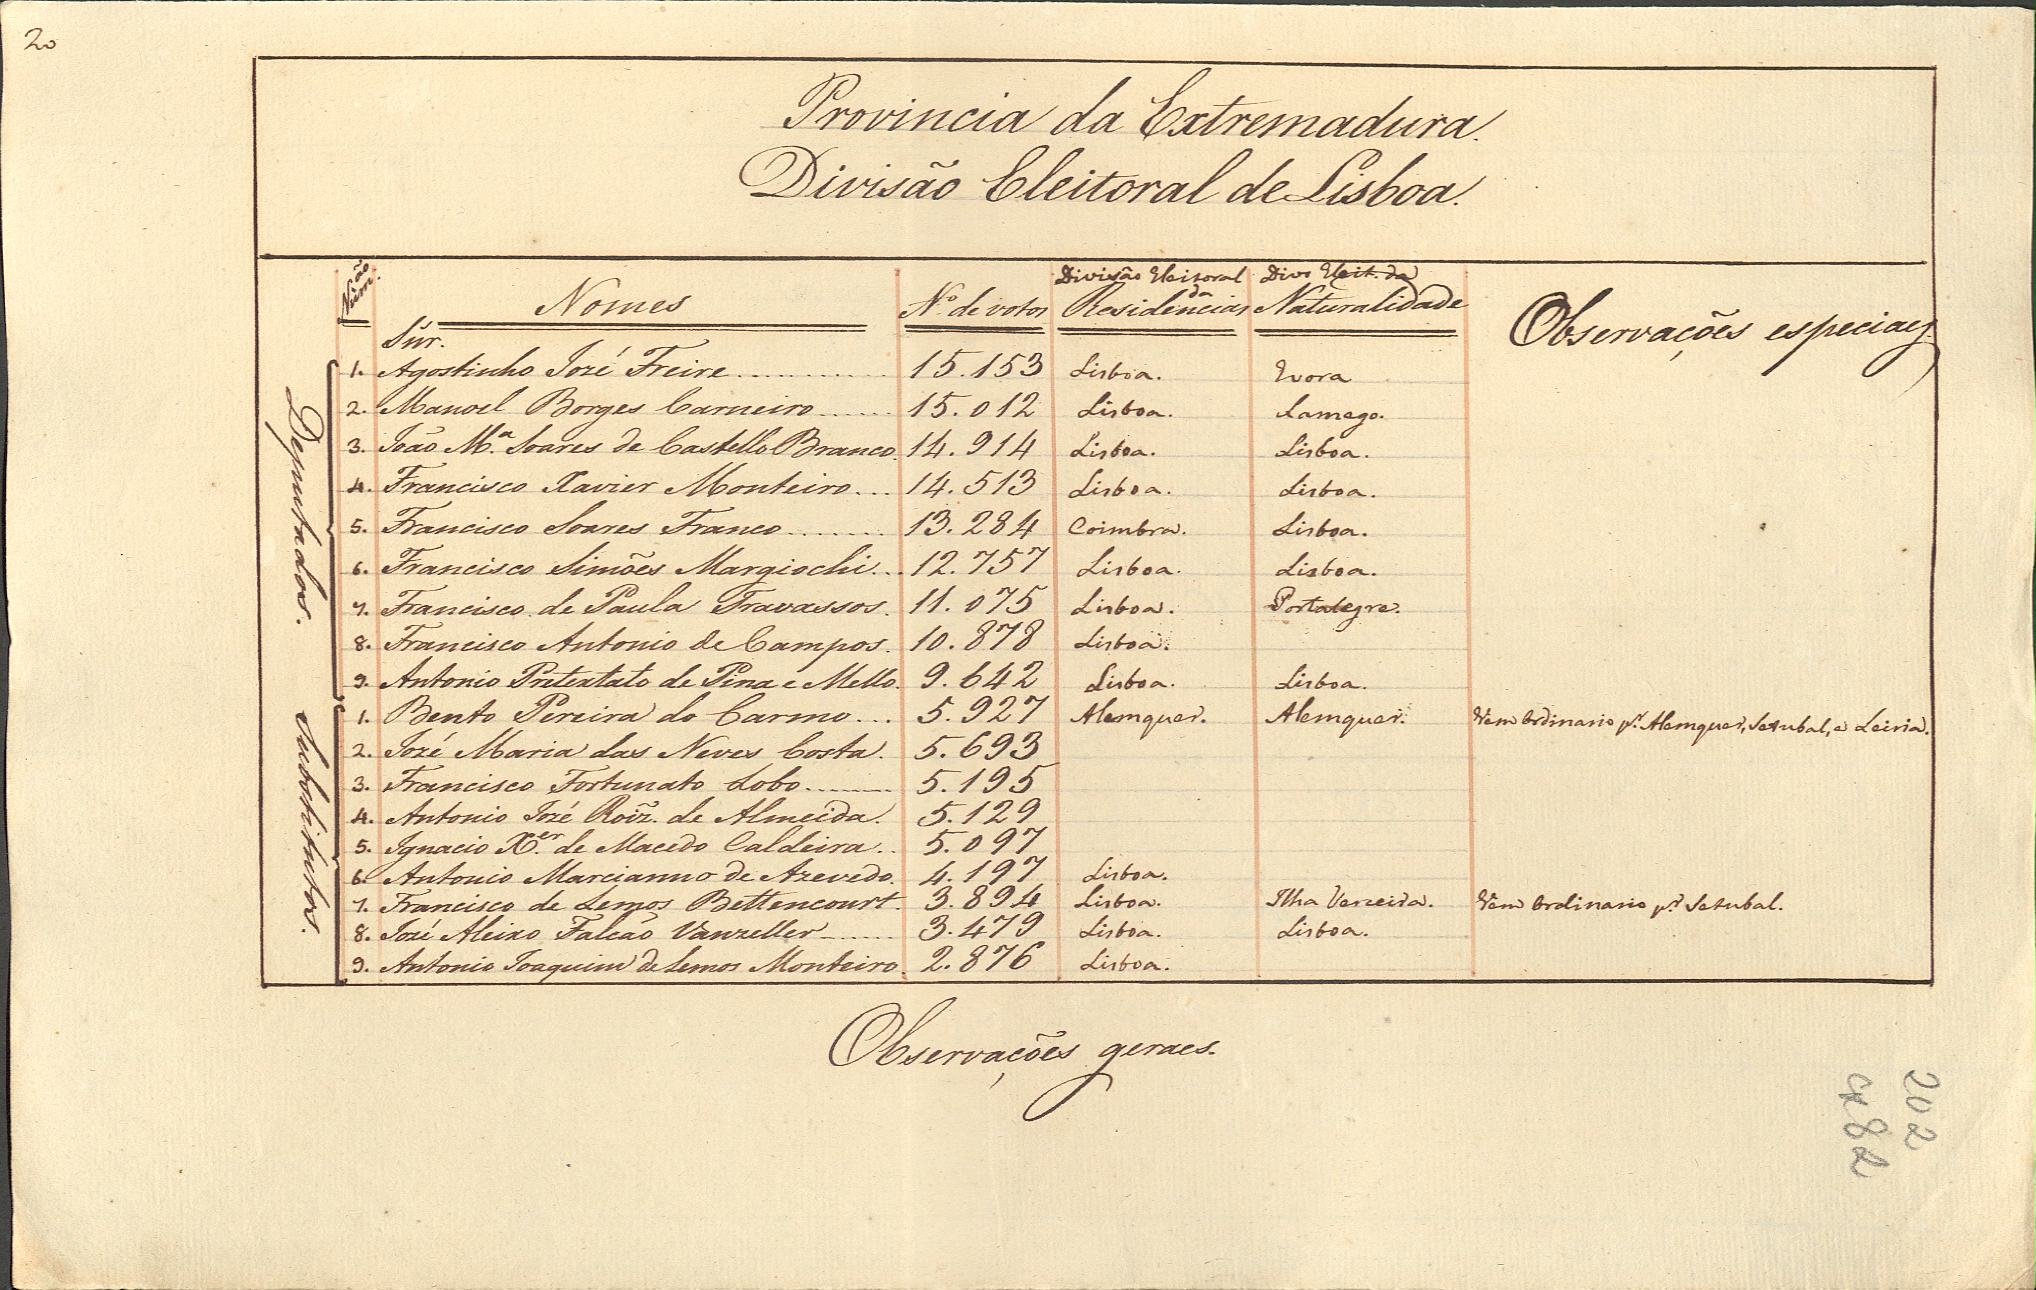 20
Provincia da Extremadura.
Divisão Eleitoral de Lisboa.
Núm.ão Nomes N.º de votos Divisão Eleitoral da Residencias Divo Eleit. da Naturalidade Observações especiaes
Snr.
Deputados.
1. Agostinho Jozé Freire 15.153 Lisboa. Evora
2. Manoel Borges Carneiro 15.012 Lisboa. Lamego.
3. João M.ª Soares de Castello Branco 14.914 Lisboa. Lisboa.
4. Francisco Xavier Monteiro 14.513 Lisboa. Lisboa.
5. Francisco Soares Franco 13.284 Coimbra. Lisboa.
6. Francisco Simões Margiochi 12.757 Lisboa. Lisboa.
7. Francisco de Paula Travassos. 11.075 Lisboa. Portalegre.
8. Francisco Antonio de Campos. 10.878 Lisboa.
9. Antonio Pretextato de Pina e Mello. 9.642 Lisboa. Lisboa.
Substitutos.
1. Bento Pereira do Carmo 5.927 Alemquer. Alemquer. Vem Ordinario p.r Alemquer, Setubal, e Leiria.
2. Jozé Maria das Neves Costa. 5.693
3. Francisco Fortunato Lobo 5.195
4. Antonio Jozé Roiz. de Almeida. 5.129
5. Ignacio X.er de Macedo Caldeira 5.097
6. Antonio Marcianno de Azevedo. 4.197 Lisboa.
7. Francisco de Lemos Bettencourt. 3.894 Lisboa. Ilha Terceira. Vem Ordinario p.r Setubal.
8. Jozé Aleixo Falcão Vanzeller 3.479 Lisboa. Lisboa.
9. Antonio Joaquim de Lemos Monteiro. 2.876 Lisboa.
Observações geraes.
202
cx 82